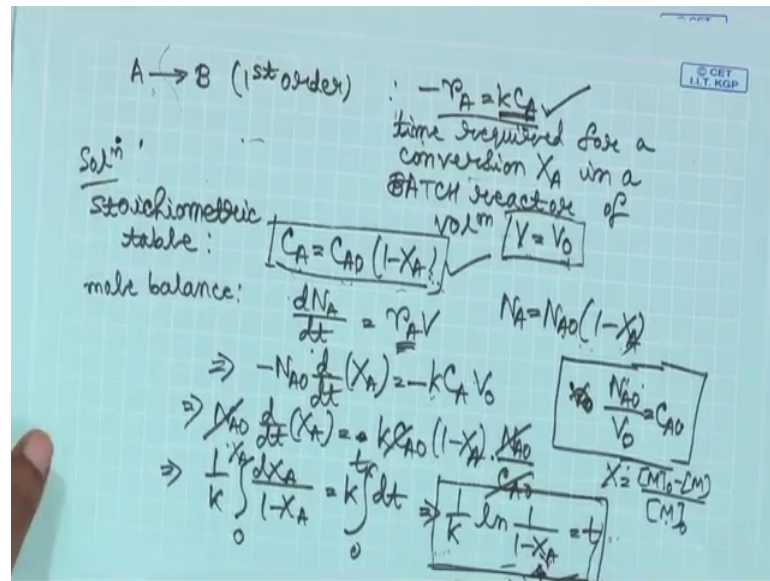 © CET
I.I.T. KGP
A → B (1st order) : -r_A = kC_A ✓
time required for a
conversion X_A in a
BATCH reactor of
vol^m V = V_0
Sol^n
Stoichiometric
table :
C_A = C_A0 (1-X_A) ✓
mole balance:
dN_A/dt = r_A V
N_A = N_A0 (1-X_A)
⇒ -N_A0 d/dt (X_A) = -kC_A V_0
N_A0/V_0 = C_A0
⇒ N_A0 d/dt (X_A) = k C_A0 (1-X_A) . N_A0/C_A0
X = [M]_0-[M]/[M]_0
⇒ 1/k ∫_0^X_A dX_A/1-X_A = k ∫_0^t dt ⇒ 1/k ln 1/1-X_A = t